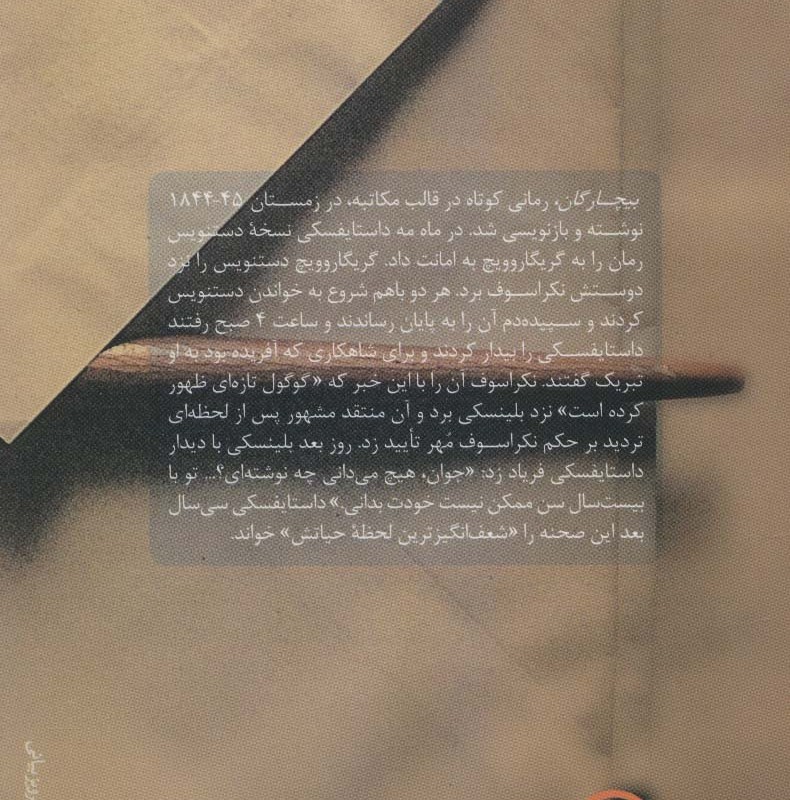 بیچارگان، رمانی کوتاه در قالب مکاتبه، در زمستان ۴۵-۱۸۴۴
نوشته و بازنویسی شد. در ماه مه داستایفسکی نسخهٔ دستنویس
رمان را به گریگاروویچ به امانت داد. گریگاروویچ دستنویس را نزد
دوستش نکراسوف برد. هر دو باهم شروع به خواندن دستنویس
کردند و سپیده‌دم آن را به پایان رساندند و ساعت ۴ صبح رفتند
داستایفسکی را بیدار کردند و برای شاهکاری که آفریده بود به او
تبریک گفتند. نکراسوف آن را با این خبر که «گوگول تازه‌ای ظهور
کرده است» نزد بلینسکی برد و آن منتقد مشهور پس از لحظه‌ای
تردید بر حکم نکراسوف مُهر تأیید زد. روز بعد بلینسکی با دیدار
داستایفسکی فریاد زد: «جوان، هیچ می‌دانی چه نوشته‌ای؟... تو با
بیست‌سال سن ممکن نیست خودت بدانی.» داستایفسکی سی‌سال
بعد این صحنه را «شعف‌انگیزترین لحظهٔ حیاتش» خواند.